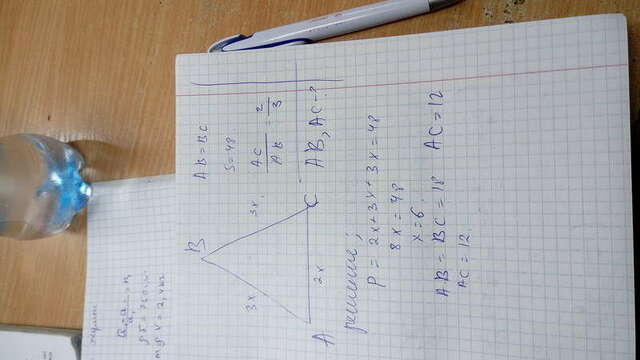 AB = BC
S = 48
AC/AB = 2/3
AB, AC - ?
B
3x
3x
A
2x
C
решение;
P = 2x + 3x + 3x = 48
8x = 48
x = 6
AB = BC = 18 AC = 12
AC = 12